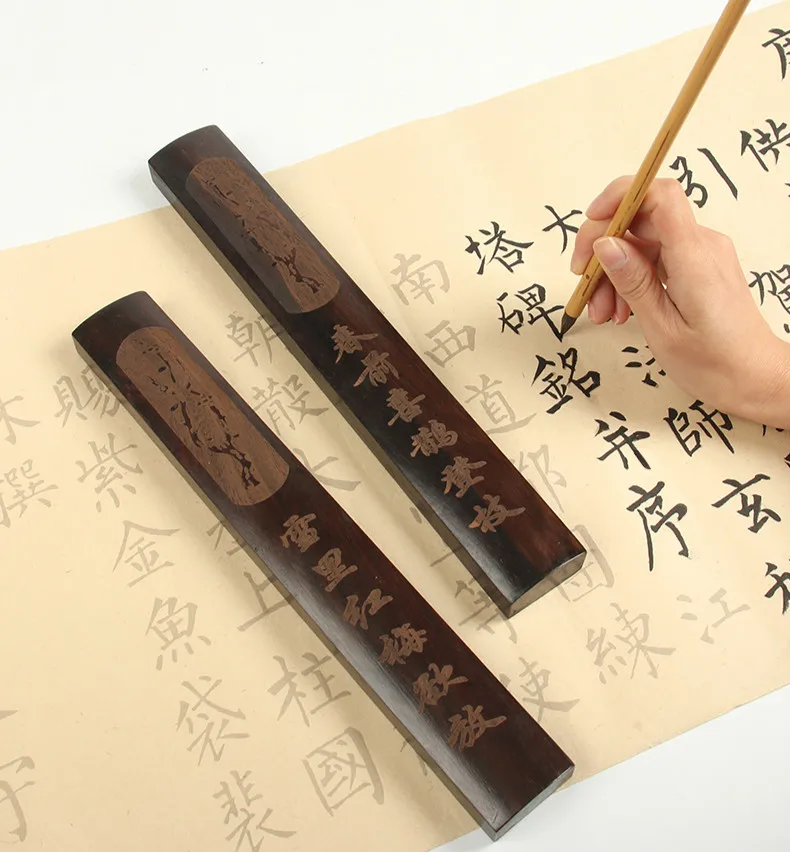 供
引
大
師
玄
塔碑銘并序江
南西道都團練
等使
朝散大
上柱國
賜紫金魚袋裴
撰
春前喜鵲登枝
雪里红梅欲放